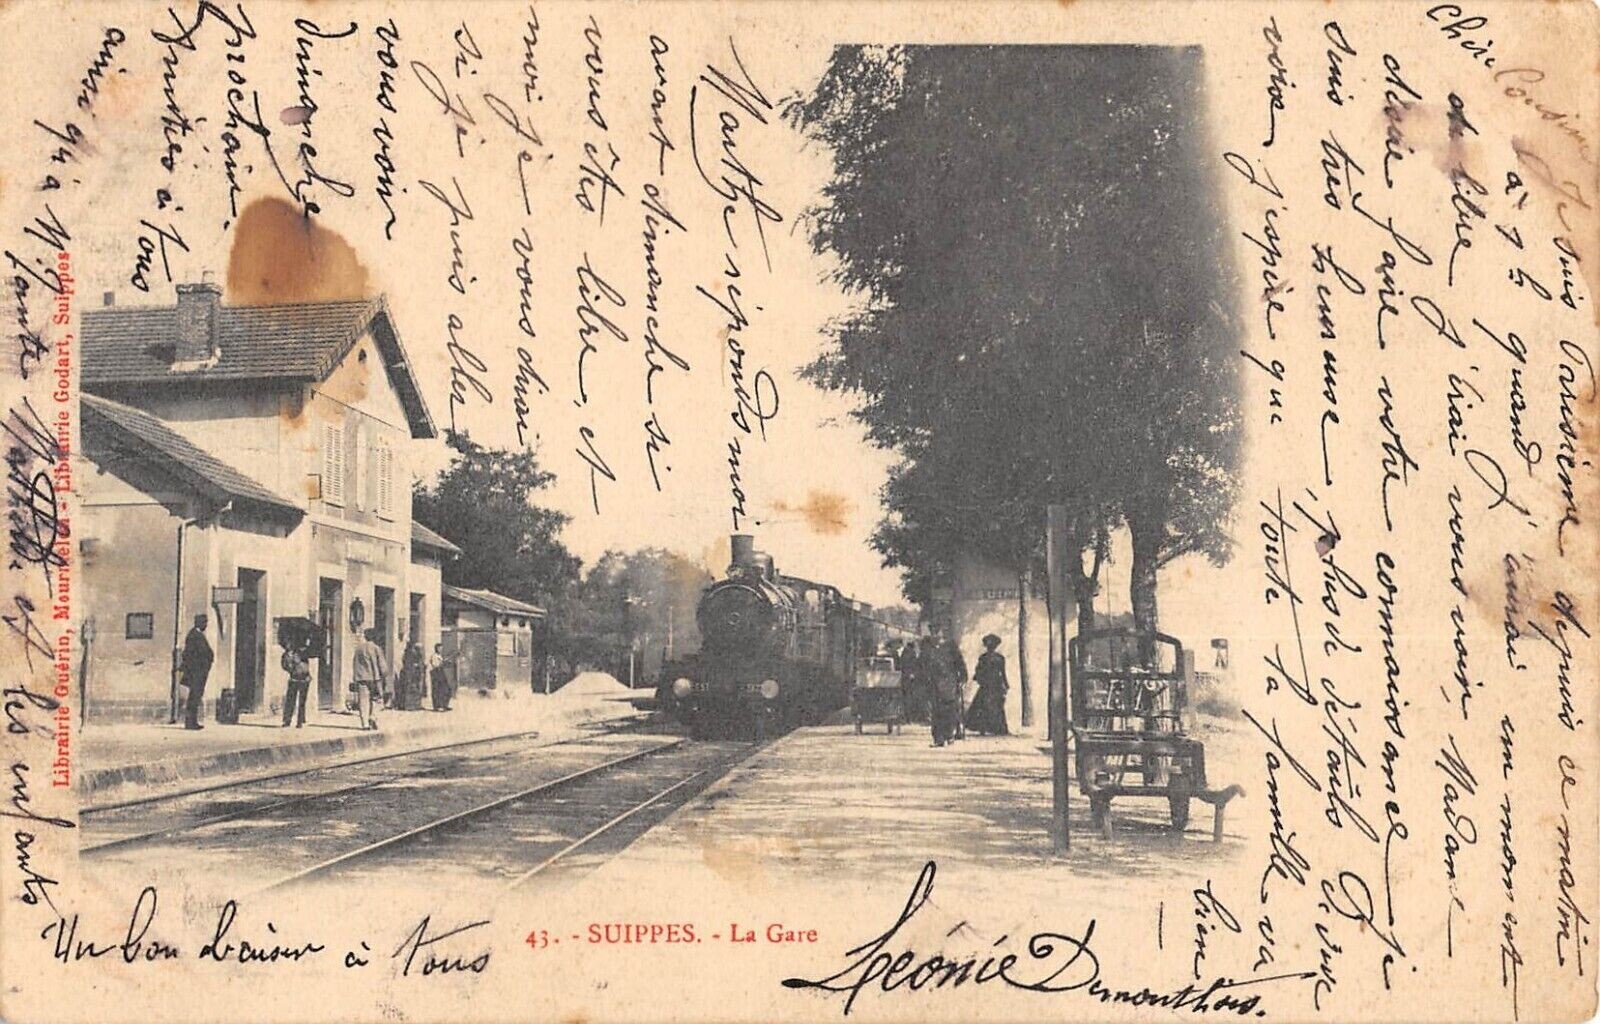 chère Cousine Je suis Parisienne depuis ce matin
à 7h quand j'aurai un moment
de libre J'irai vous voir, Madame
désire faire votre connaissance Je
suis très heureuse, plus de détails de vive
voix j'espère que toute la famille va
bien
Marthe réponds moi
avant dimanche si
vous êtes libre, et
moi je vous dirai
si je puis aller
vous voir
dimanche
prochain.
Amitiés à tous
ainsi qu'à M.
Mathilde et les enfants
Un bon baiser à tous
Léonie Demonthois.
43. - SUIPPES. - La Gare
Librairie Guérin, Mourmelon - Librairie Godart, Suippes